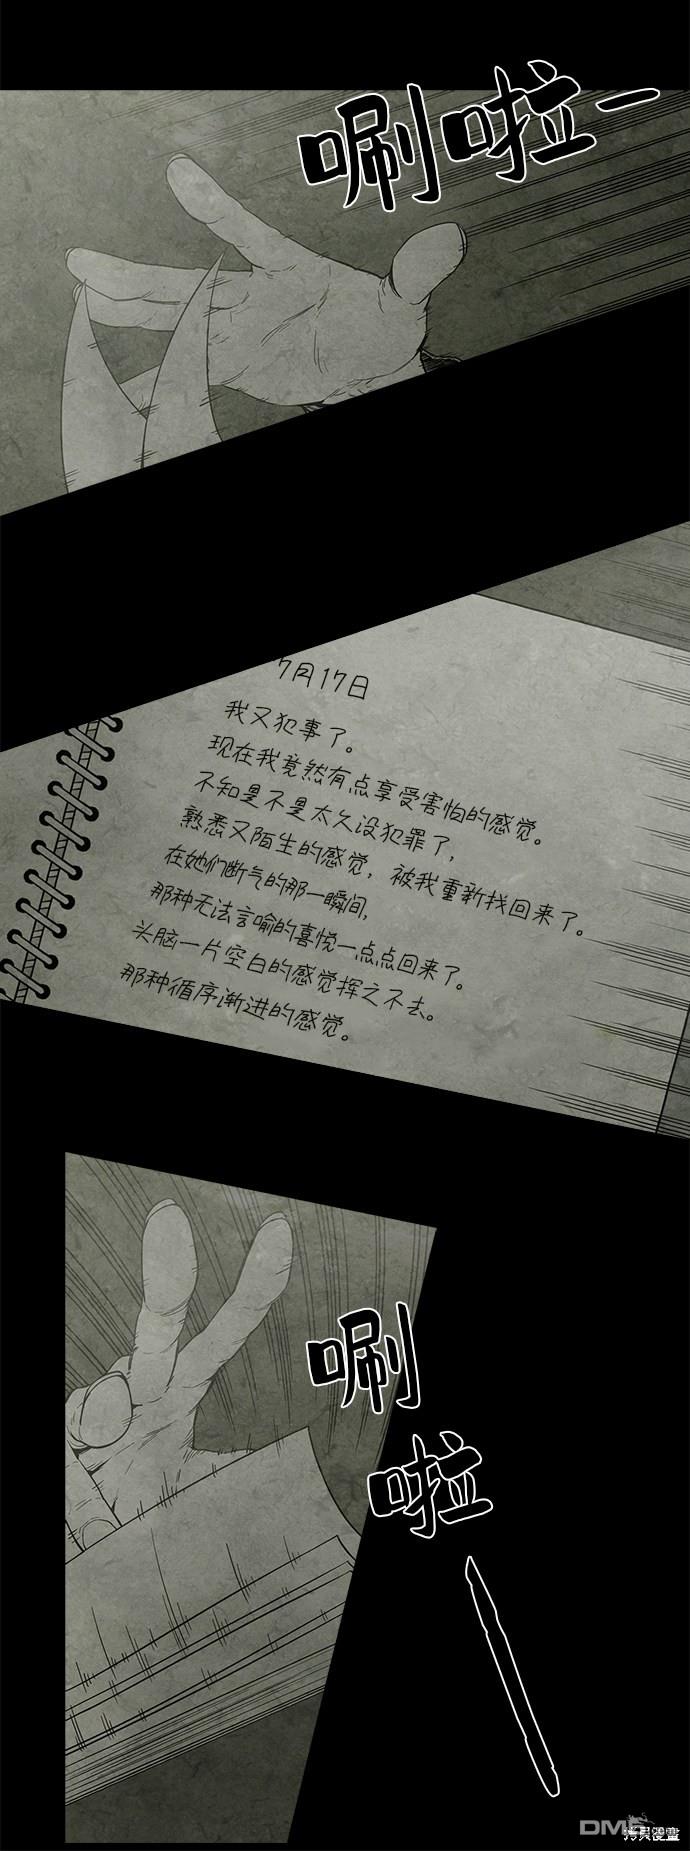 唰啦一
7月17日
我又犯事了。
现在我竟然有点享受害怕的感觉。
不知是不是太久没犯罪了，
熟悉又陌生的感觉，被我重新找回来了。
在她们断气的那一瞬间，
那种无法言喻的喜悦一点点回来了。
头脑一片空白的感觉挥之不去。
那种循序渐进的感觉。
唰
啦
一
拷貝漫畫